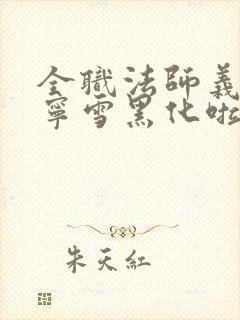 全職法師義
寧雪黑化啦
朱天紅